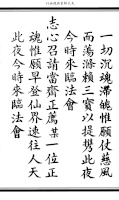 一切沉魂滯魄惟願仗慈風
而蕩滌賴三寶以提携此夜
今時來臨法會
志心召請當齋正薦某一位正
魂惟願早登仙界速往人天
此夜今時來臨法會